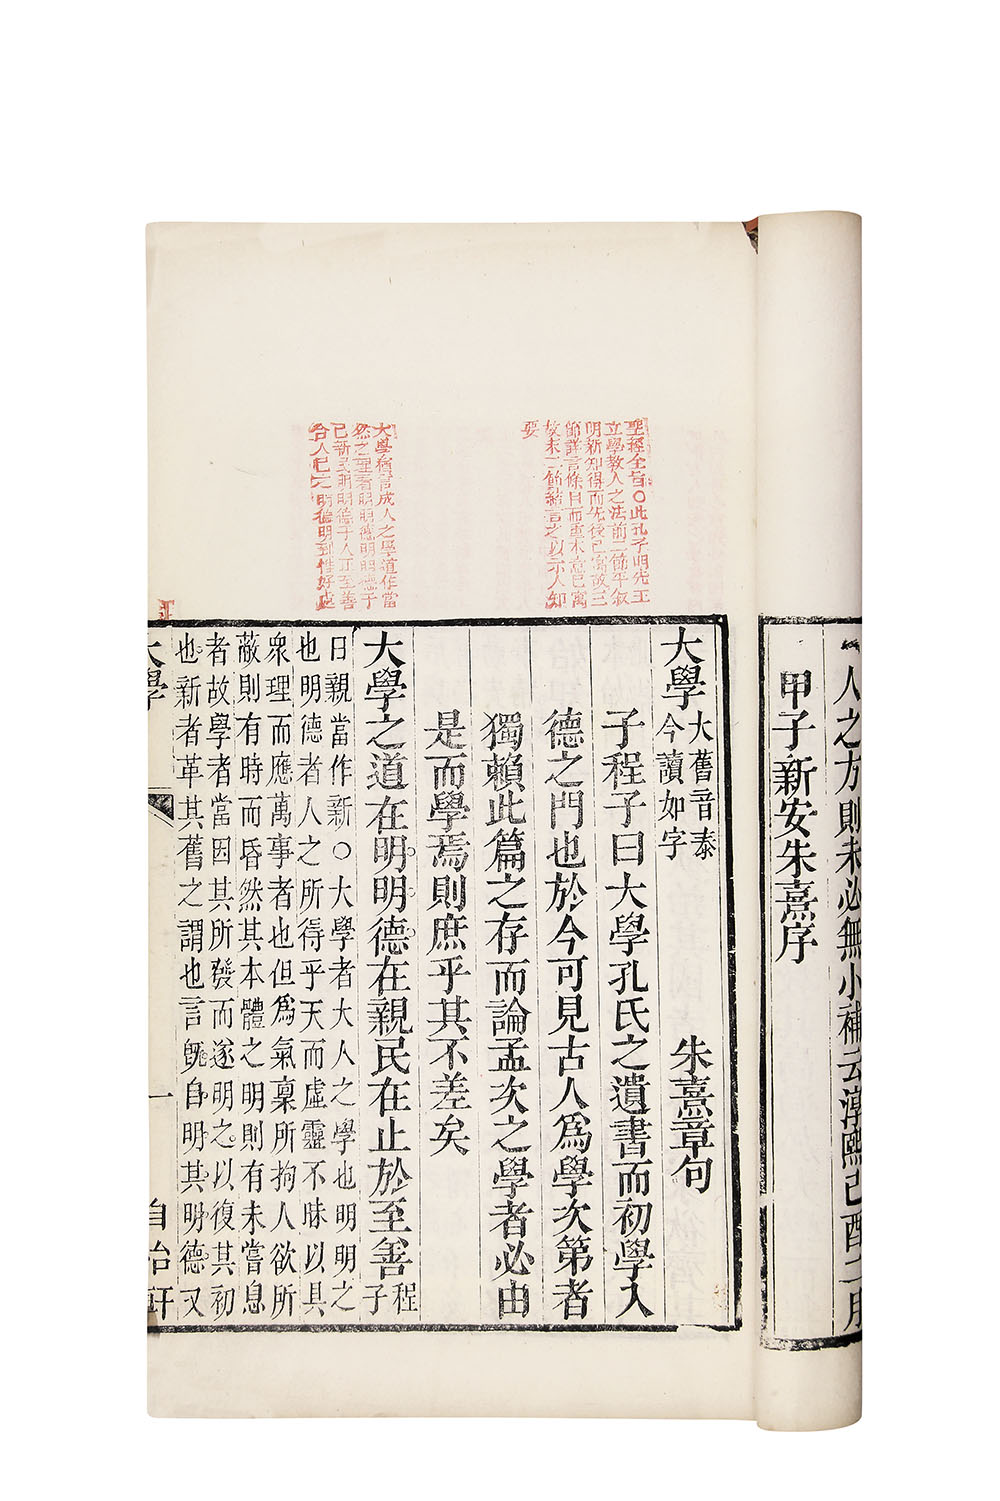 人之方則未必無小補云淳熙己酉二月
甲子新安朱熹序
聖經全旨○此孔子明先王
立學教人之法前二節平叙
明新知得而先後已寓故三
節詳言條目而重本意已寓
故末二節結言之以示人知
要
大學猶言成人之學道作當
然之理看明明德明明德于
己新民明明德于人止至善
合人己之明德明到恰好處
大學大舊音泰
今讀如字 朱熹章句
子程子曰大學孔氏之遺書而初學入
德之門也於今可見古人爲學次第者
獨賴此篇之存而論孟次之學者必由
是而學焉則庶乎其不差矣
大學之道在明明德在親民在止於至善程
子
曰親當作新○大學者大人之學也明明之
也明德者人之所得乎天而虛靈不昧以具
衆理而應萬事者也但爲氣稟所拘人欲所
蔽則有時而昏然其本體之明則有未嘗息
者故學者當因其所發而遂明之以復其初
也新者革其舊之謂也言旣自明其明德又
大學 一 自怡軒